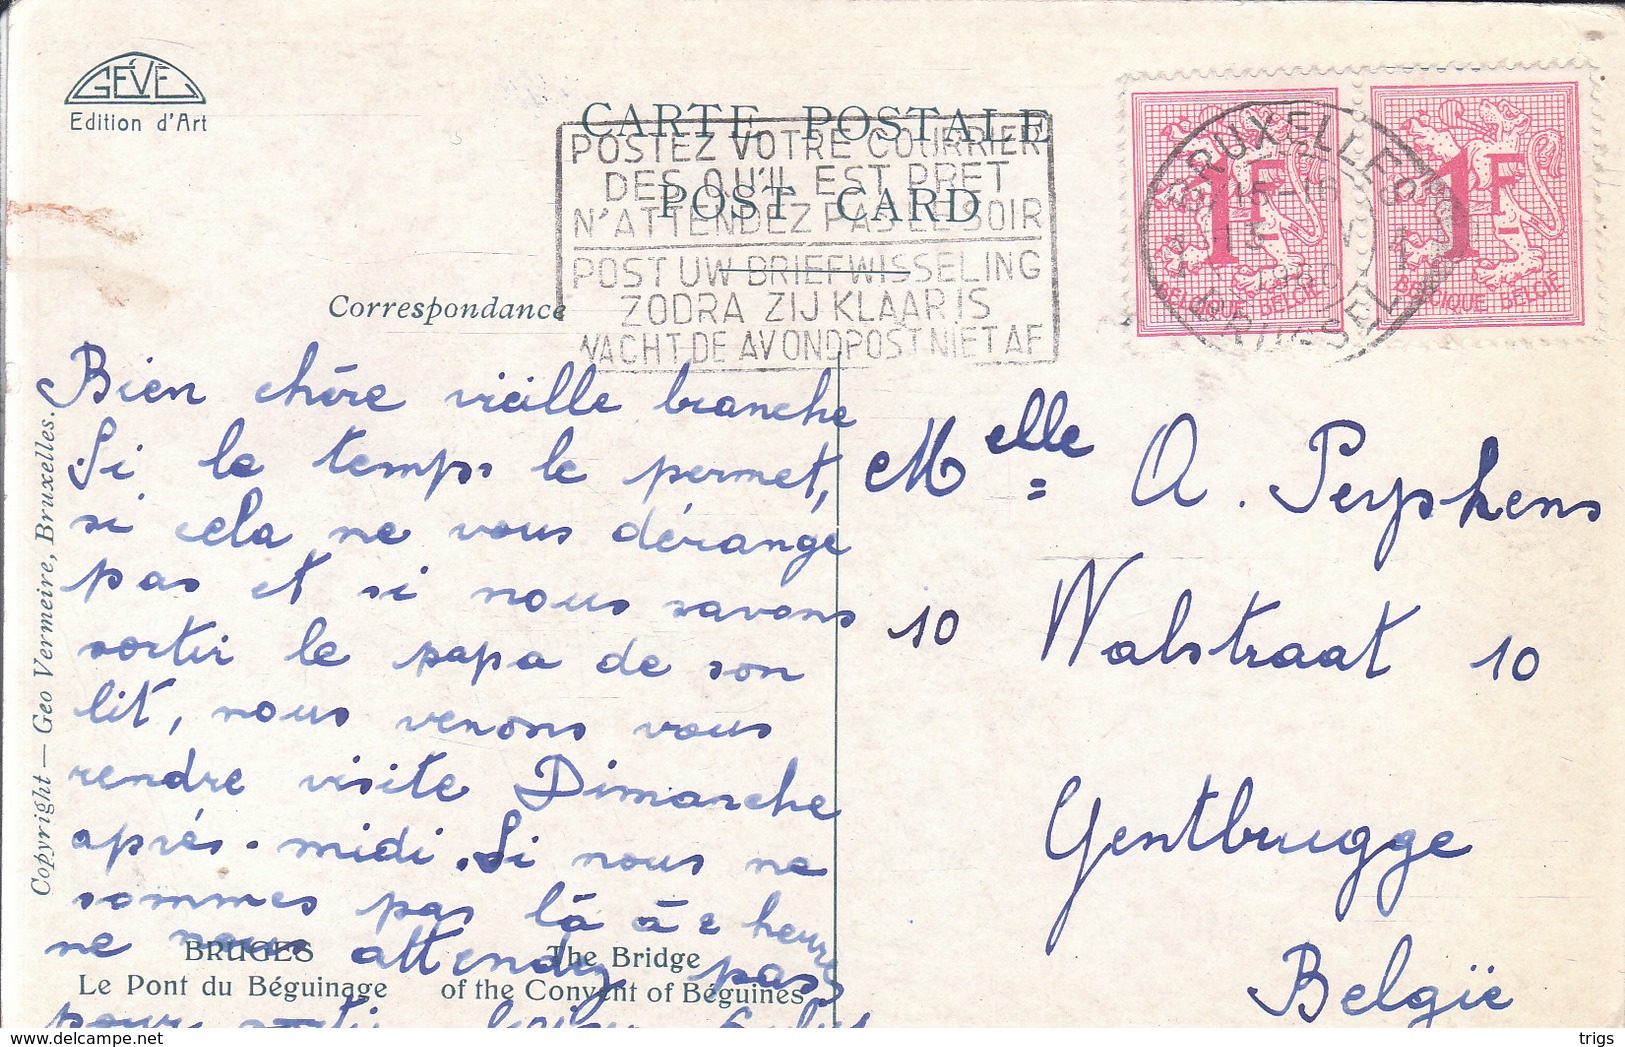 GÉVÉ
Edition d'Art
CARTE POSTALE
POST CARD
POSTEZ VOTRE COURRIER
DES QU'IL EST PRET
N'ATTENDEZ PAS LE SOIR
POST UW BRIEFWISSELING
ZODRA ZIJ KLAAR IS
WACHT DE AVONDPOST NIET AF
BRUXELLES
15-16
1960
BRUSSEL
1F
BELGIQUE BELGIË
1F
BELGIQUE BELGIË
Correspondance
Bien chère vieille branche
Si le temps le permet,
si cela ne vous dérange
pas et si nous savons
sortir le papa de son
lit, nous venons vous
rendre visite Dimanche
après-midi. Si nous ne
sommes pas là à 2 heures
ne nous attendez pas
pour sortir
Melle = A. Peryhens
10 Walstraat 10
Gentbrugge
Belgïe
Copyright — Geo Vermeire, Bruxelles.
BRUGES
Le Pont du Béguinage
The Bridge
of the Convent of Béguines
delcampe.net
trigs